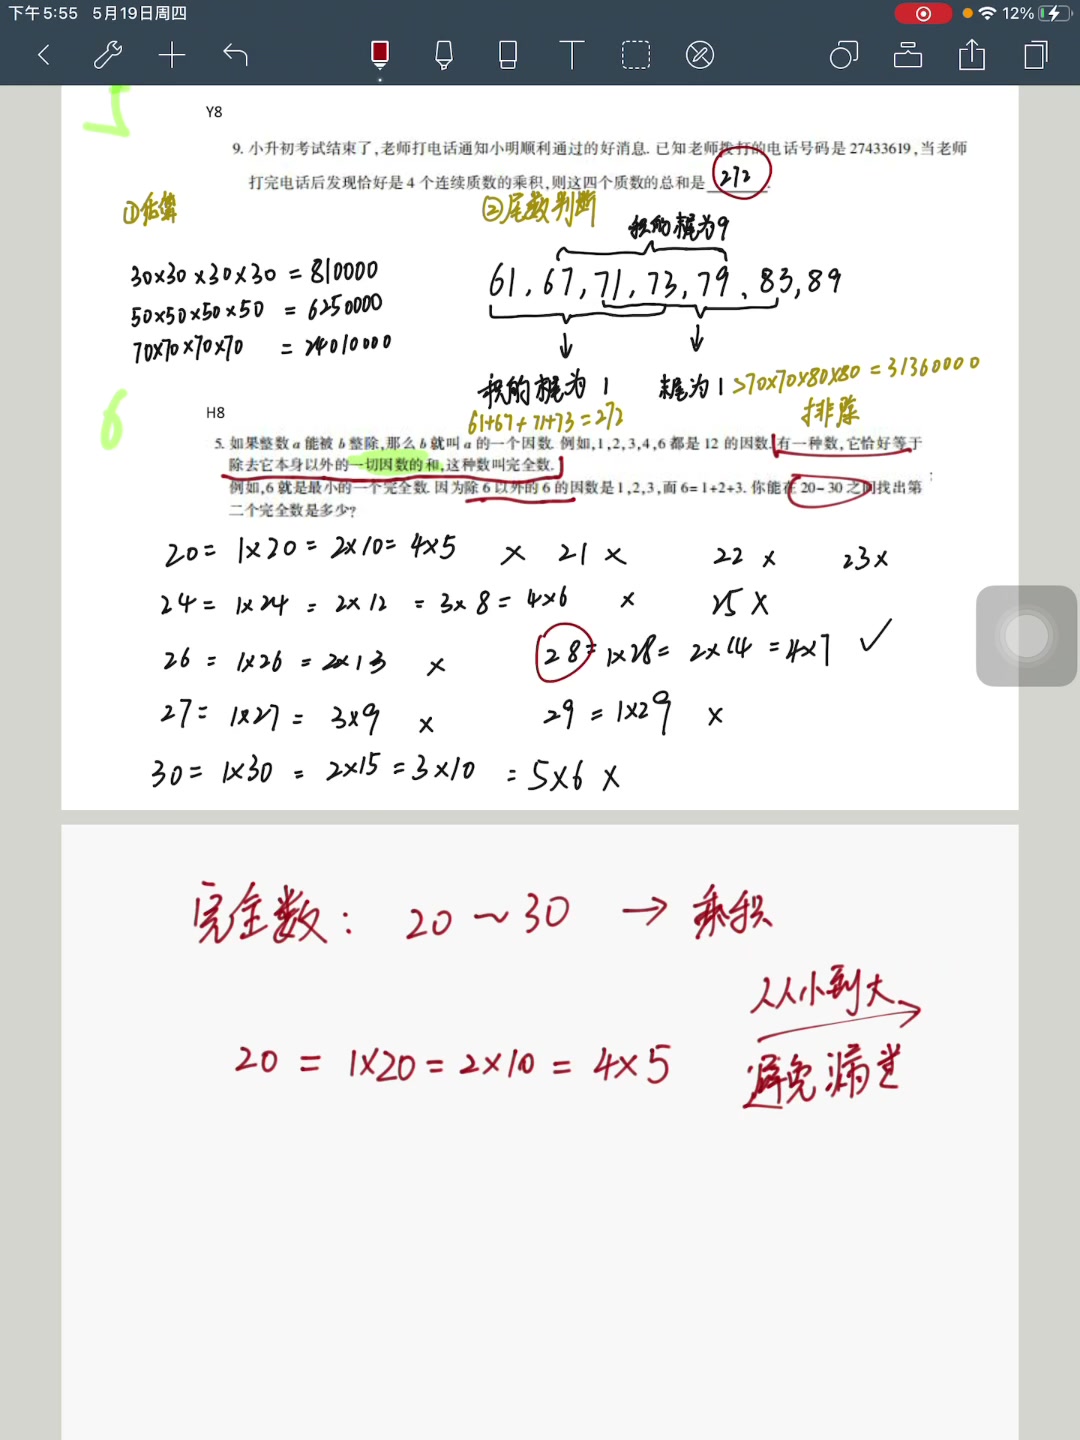 下午5:55 5月19日周四
12%
5
Y8
9. 小升初考试结束了,老师打电话通知小明顺利通过的好消息. 已知老师拨打的电话号码是 27433619,当老师
打完电话后发现恰好是 4 个连续质数的乘积,则这四个质数的总和是 272.
①估算
②尾数判断
积的尾为9
30×30×30×30 = 810000
61, 67, 71, 73, 79, 83, 89
50×50×50×50 = 6250000
70×70×70×70 = 24010000
积的尾为1
尾为1 >70×70×80×80 = 31360000
61+67+71+73=272
排除
6
H8
5. 如果整数 a 能被 b 整除,那么 b 就叫 a 的一个因数. 例如,1,2,3,4,6 都是 12 的因数. 有一种数,它恰好等于
除去它本身以外的一切因数的和,这种数叫完全数.
例如,6 就是最小的一个完全数. 因为除 6 以外的 6 的因数是 1,2,3,而 6=1+2+3. 你能在 20-30 之间找出第
二个完全数是多少?
20= 1×20= 2×10= 4×5 × 21 × 22 × 23×
24= 1×24 = 2×12 = 3×8= 4×6 × 25 ×
26 = 1×26 = 2×13 × 28= 1×28= 2×14 =4×7 ✓
27= 1×27= 3×9 × 29 = 1×29 ×
30= 1×30 = 2×15 =3×10 = 5×6 ×
完全数: 20 ~ 30 → 乘积
从小到大
20 = 1×20 = 2×10 = 4×5
避免漏